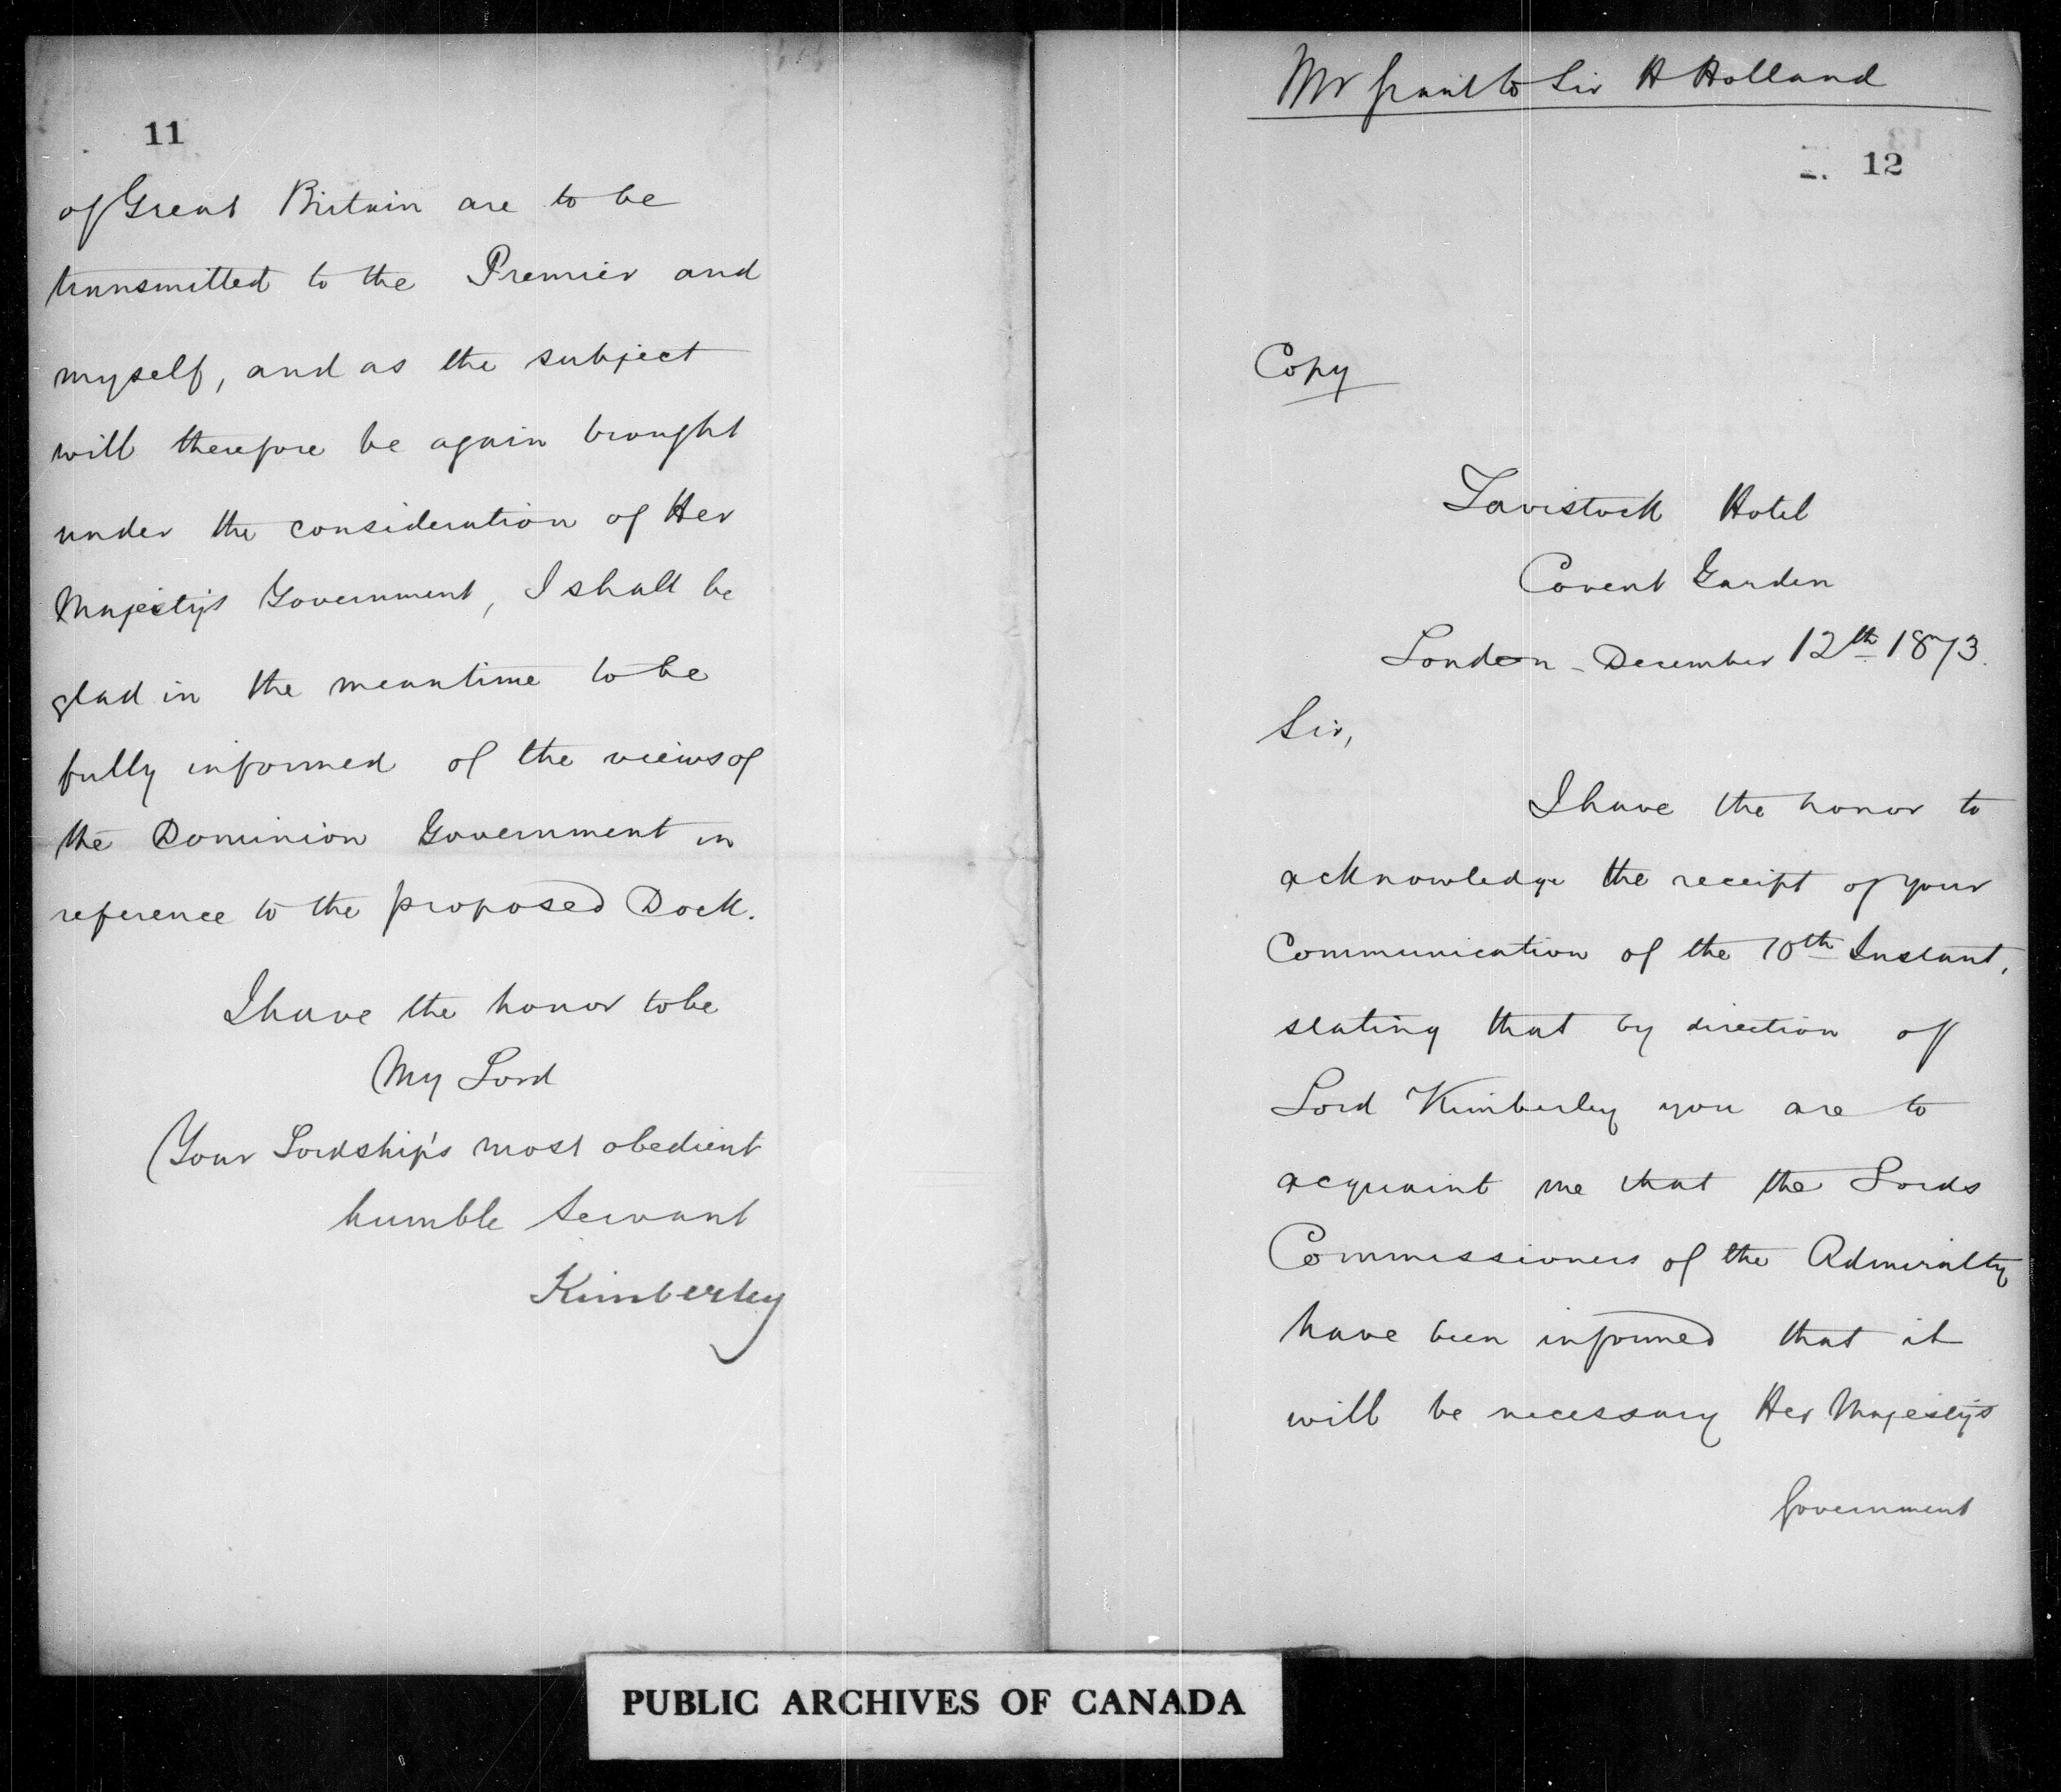 11
of Great Britain are to be
transmitted to the Premier and
myself, and as the subject
will therefore be again brought
under the consideration of Her
Majesty's Government, I shall be
glad in the meantime to be
fully informed of the views of
the Dominion Government in
reference to the proposed Dock.
I have the honor to be
My Lord
Your Lordship's most obedient
humble Servant
Kimberley
Mr Grant to Sir H Holland
12
Copy
Tavistock Hotel
Covent Garden
London - December 12th 1873.
Sir,
I have the honor to
acknowledge the receipt of your
Communication of the 10th Instant,
stating that by direction of
Lord Kimberley you are to
acquaint me that the Lords
Commissioners of the Admiralty
have been informed that it
will be necessary Her Majesty's
Government
PUBLIC ARCHIVES OF CANADA